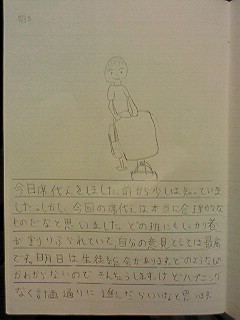 今日席代えをしました。前から少しは知っていま
したが。しかし、今回の席代えは本当に合理的なな
ものだなと思いました。どの班にもしっかり者
がふりふられていて。自分の意見としては最高
です。明日は生徒総会があります。どのようなもの
かわからないので きんちょうしますけどハプニング
なく計画通りに進んだらいいなと思います